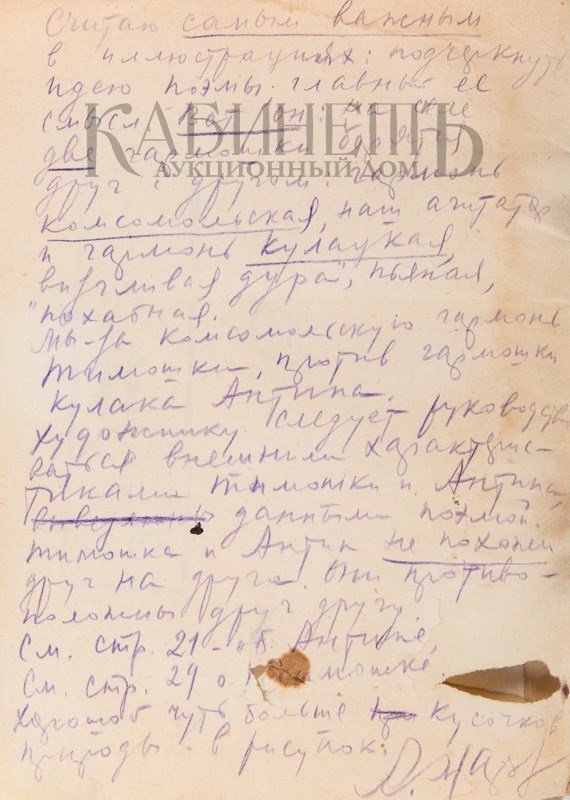 Считаю самым важным
в иллюстрациях: подчеркнуть
идею поэмы. главный ее
смысл. Вот он: на селе
две гармошки борятся
друг с другом: гармонь
комсомольская, наш агитатор
и гармонь кулацкая,
визгливая дура", пьяная,
"похабная.
Мы-за комсомольскую гармонь
Тимошки, против гармошки
кулака Антипа.
Художнику следует руководство
ваться внешними характерис-
тиками Тимошки и Антипа,
данными поэмой.
Тимошка и Антип не похожи
друг на друга. Они противо-
положны друг другу
См. стр. 21 - об Антипе,
См. стр. 29 о Тимошке
Хорошо б чуть больше кусочков
природы в рисунок.
А. Жаров
КАБИНЕТЪ
АУКЦИОННЫЙ ДОМ